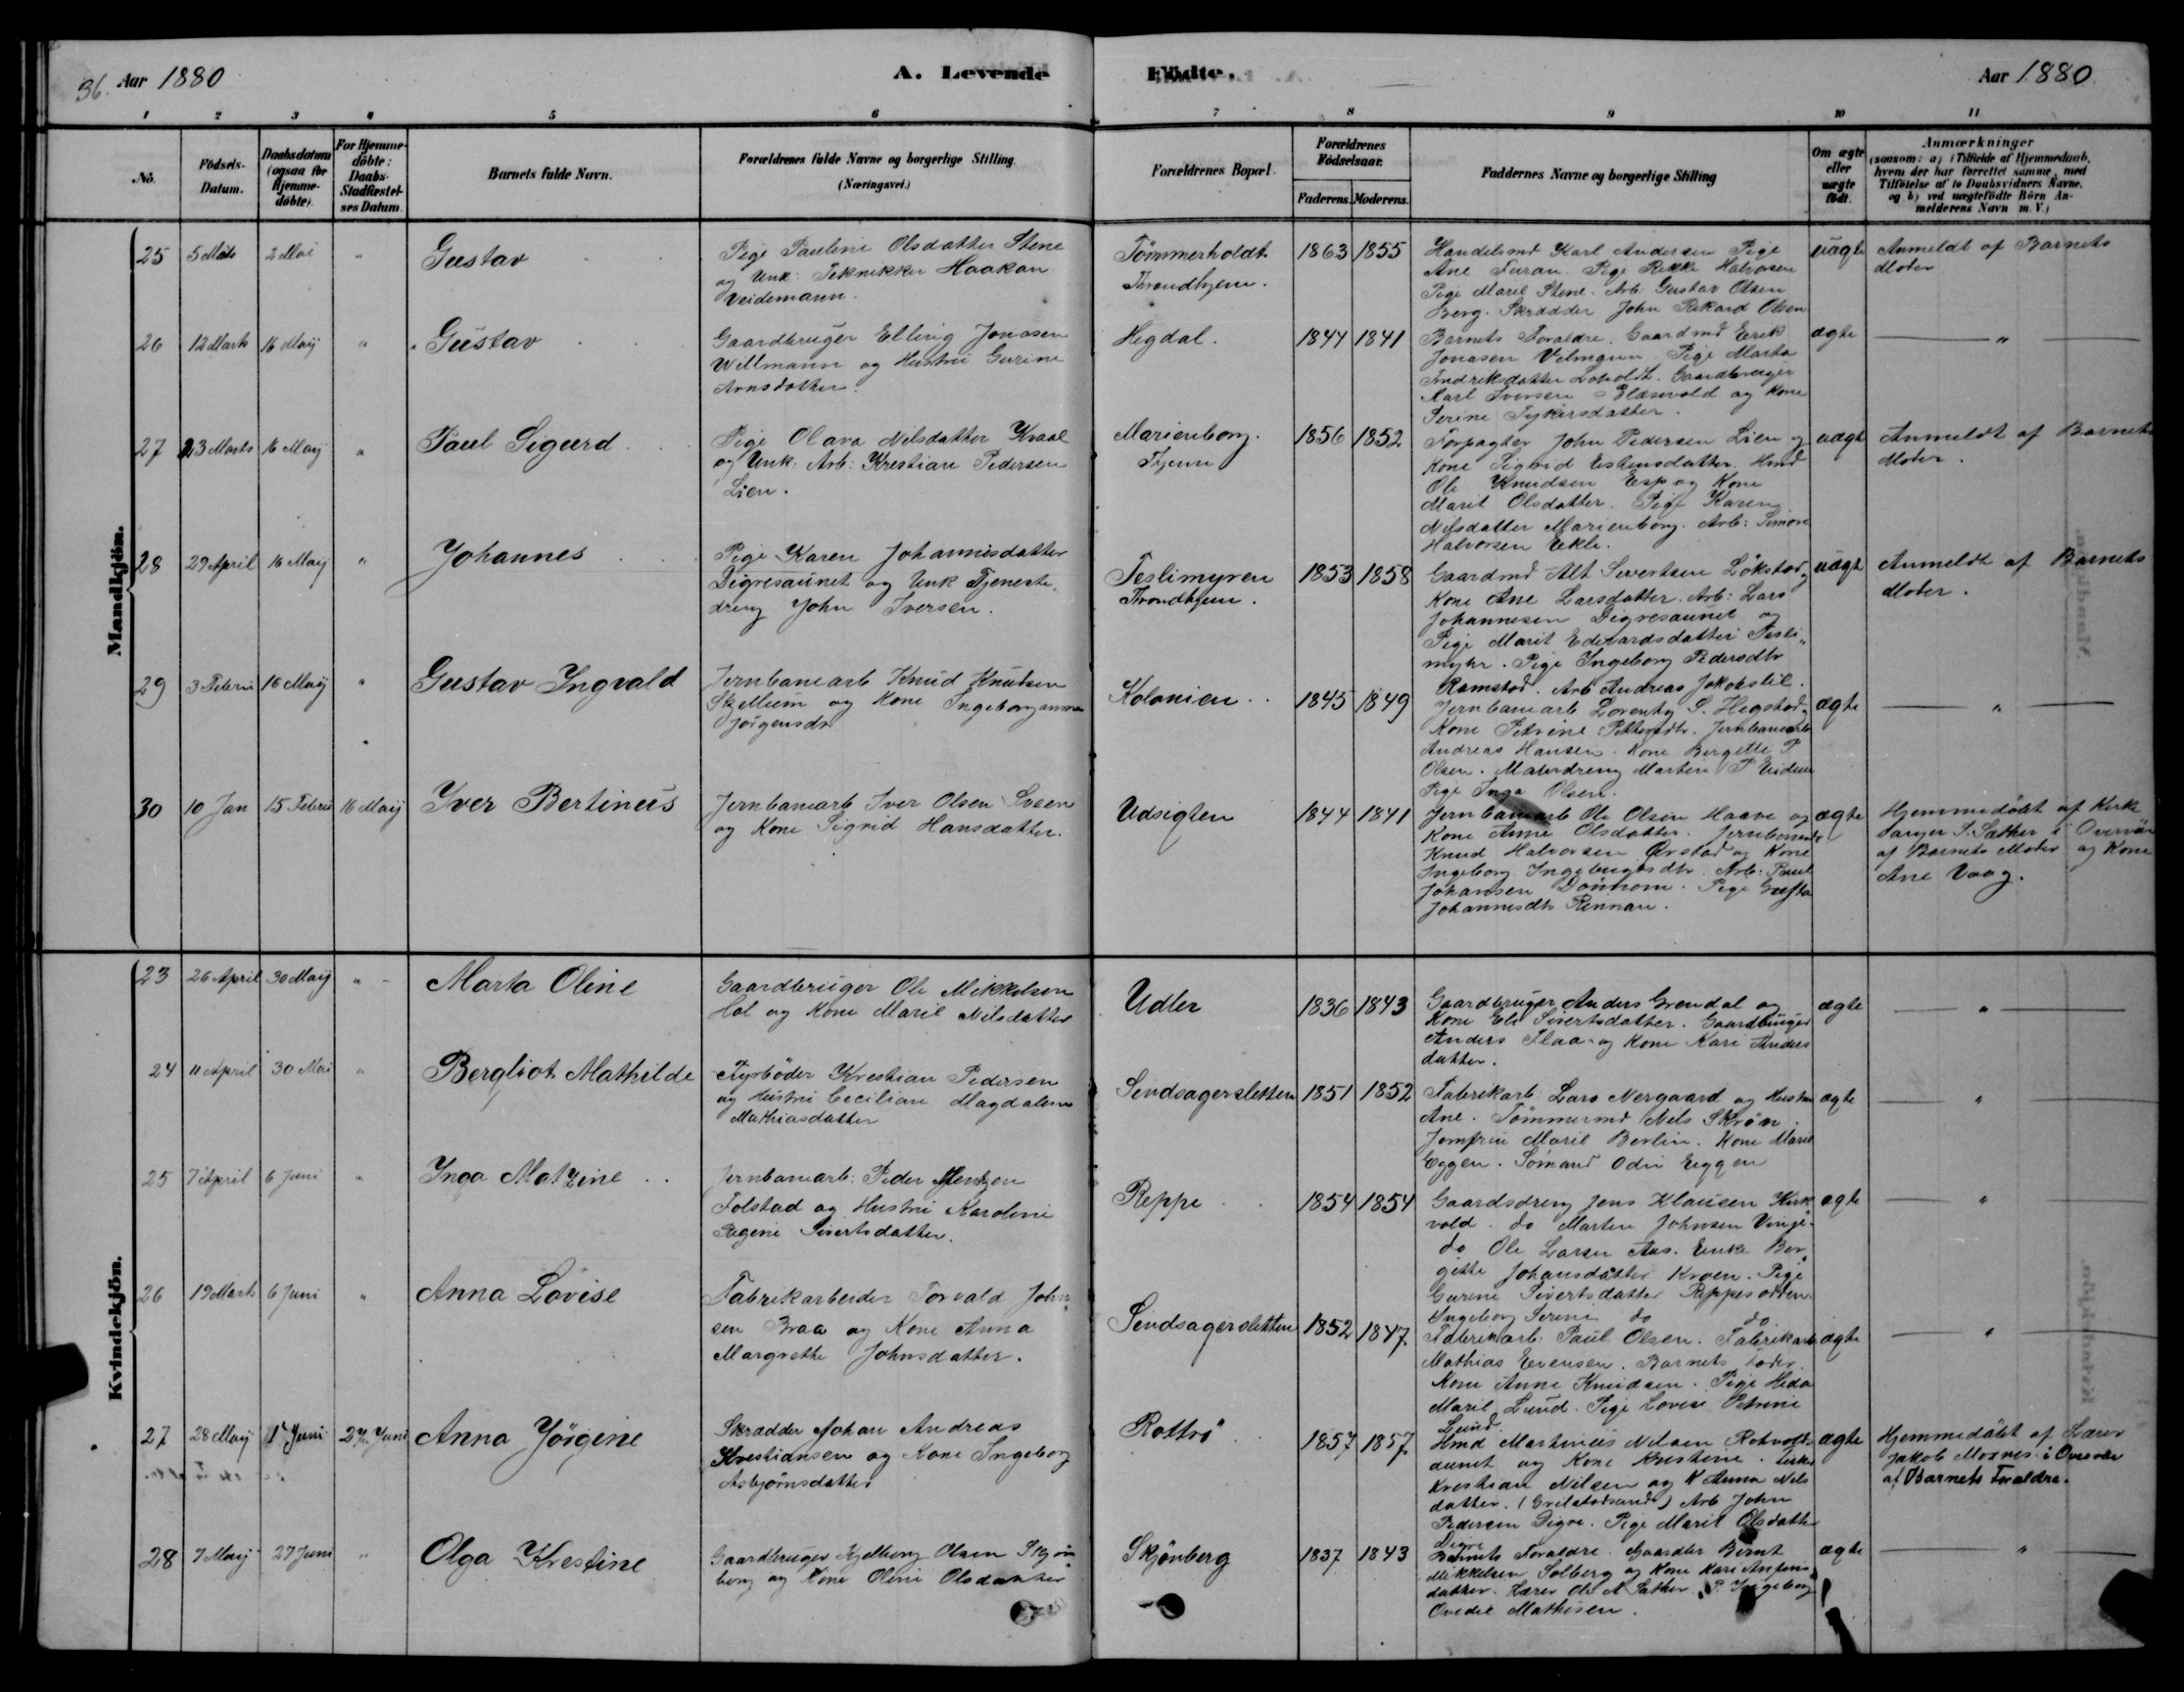 36. Aar 1880 A. Levende Födte. Aar 1880
1 2 3 4 5 6 7 8 9 10 11
No. Födsels-Datum. Daabsdatum (ogsaa for Hjemme-döbte). For Hjemme-döbte: Daabs-Stadfæstel-ses Datum. Barnets fulde Navn. Forældrenes fulde Navne og borgerlige Stilling (Næringsvei.) Forældrenes Bopæl. Forældrenes Födselsaar. Faderens. Moderens. Faddernes Navne og borgerlige Stilling Om ægte eller uægte födt. Anmærkninger (saasom: a) i Tilfælde af Hjemmedaab, hvem der har forrettet samme, med Tilföielse af to Daabsvidners Navne, og b) ved uægtefödte Börn Anmelderens Navn m. V.)
Mandkjön.
25 5 Marts 2 Mai " Gustav
Pige Pauline Olsdatter Stene
og Unk: Teknikker Haakon
Veidemann.
Tømmerholdt
Throndhjem.
1863 1855
Handelsmd Karl Andersen Pige
Ane Furan. Pige Rikke Halvorsen
Pige Marit Stene. Arb: Gustav Olsen
Berg. Skrædder John Rikard Olsen
uægte
Anmeldt af Barnets
Moder
26 12 Marts 16 Maij " Gustav
Gaardbruger Elling Jonasen
Willmann og Hustru Gurine
Arnsdatter.
Hegdal.
1844 1841
Barnets Forældre. Gaardmd Erik
Jonasen Velmann. Pige Marta
Indriksdatter Loholdt. Gaardbruger
Karl Iversen Elasevold og Kone
Serine
ægte "
27 23 Marts 16 Maij " Paul Sigurd
Pige Olava Nilsdatter Kraal
og Unk: Arb: Krestian Pedersen
Lien.
Marienborg.
Thjem
1856 1852
Forpagter John Pedersen Lien og
Kone Sigrid Estensdatter. Hmd
Ole Knudsen Esp og Kone
Marit Olsdatter. Pige Karen
Nilsdatter Marienborg. Arb: Simon
Halvorsen Ekle.
uægte
Anmeldt af Barnets
Moder.
28 29 April 16 Maij " Johannes
Pige Karen Johannisdatter
Digresaunet og Unk Tjeneste-
dreng John Iversen.
Teslimyren
Throndhjem.
1853 1858
Gaardmd Alt Sivertsen Løkstad og
Kone Ane Larsdatter. Arb: Lars
Johannesen Digresaunet og
Pige Marit Edevardsdatter Tesli-
myhr. Pige Ingeborg Pedersdtr
Ramstad. Arb Andreas Jakobslie.
uægt
Anmeldt af Barnets
Moder.
29 3 Februar 16 Maij " Gustav Ingvald
Jernbanearb Knud Knudsen
Skjellum og Kone Ingeborganna
Jørgensdr
Kolonien
1845 1849
Jernbanearb Lorentz S. Hegstad og
Kone Petrine Pettersdtr. Jernbanearb
Andreas Hansen. Kone Bergitte P
Olsen. Malerdreng Martin P Eidem
Pige Inga Olsen.
ægte "
30 10 Jan 15 Februar 16 Maij Iver Bertineus
Jernbanearb Iver Olsen Sveen
og Kone Sigrid Hansdatter.
Udsigten
1844 1841
Jernbanearb Ole Olsen Haave og
Kone Anne Olsdatter. Jernbanearb
Knud Halvorsen Ørstad og Kone
Ingeborg Ingebrigtsdtr. Arb: Paul
Johansen Dønheim. Pige Gusta
Johannesdtr Rennan.
ægte
Hjemmedøbt af Kirke
sanger P. Sæther i Overvær
af Barnets Moder og Kone
Ane Vaag.
Kvindekjön.
23 26 April 30 Maij " Marta Oline
Gaardbruger Ole Mikkelsen
Hol og Kone Marit Nilsdatter
Udler
1836 1843
Gaardbruger Anders Grendal og
Kone Eli Sivertsdatter. Gaardbruger
Anders Flaa og Kone Kari Anders
datter.
ægte "
24 11 April 30 Mai " Bergliot Mathilde
Fyrbøder Krestian Pedersen
og Hustru Cecilian Magdalene
Mathiasdatter
Sindsagersletten
1851 1852
Fabrikarb: Lars Nergaard og Hustru
Ane. Tømmermd Nils Skrøn.
Jomfru Marit Berlin. Kone Marit
Eggen. Sømand Odin Eggen
ægte "
25 7 April 6 Juni " Inga Matzine
Jernbanearb: Peder Jentzen
Tolstad og Hustru Karoline
Regine Sivertsdatter.
Reppe
1854 1854
Gaardsdreng Jens Klausen Kirk
vold. do Martin Johnsen Vinje.
do Ole Larsen Aas. Enke Ber-
gitte Johansdatter Kroen. Pige
Gurine Sivertsdatter Reppesodden.
Ingeborg Serine do do.
ægte "
26 19 Marts 6 Juni " Anna Lovise
Fabrikarbeider Torvald John-
sen Braa og Kone Anna
Margrethe Johnsdatter.
Sindsagersletten
1852 1847.
Fabrikarb: Paul Olsen. Fabrikarb
Mathias Evensen. Barnets Fader.
Kone Anne Knudsen. Pige Hida
Marit Lund. Pige Lovise Petrine
Lund.
ægte "
27 28 Maij 1 Juni 27 Juni Anna Jörgine
Skrædder Johan Andreas
Krestiansen og Kone Ingeborg
Asbjørnsdatter
Rottrö
1857 1857
Hmd Martinius Nilsen Rotvolds
aunet og Kone Kristine.
Krestian Nilsen og K Anna Nils
datter. (Grilstadsand) Arb John
Pedersen Digre. Pige Marit Olsdatter
Digre
ægte
Hjemmedøbt af Lærer
Jakob Moxnes i Overvær
af Barnets Forældre.
28 7 Maij 27 Juni " Olga Krestine
Gaardbruger Kjelberg Olsen Skjøn
berg og Kone Oline Olsdatter
Skjönberg
1837 1843
Barnets Forældre. Gaardbr Bernt
Mikkelsen Solberg og Kone Kari Anfins
datter. Lærer Ole A Sæther. P Ingeborg
Ovedie Mathisen.
ægte "